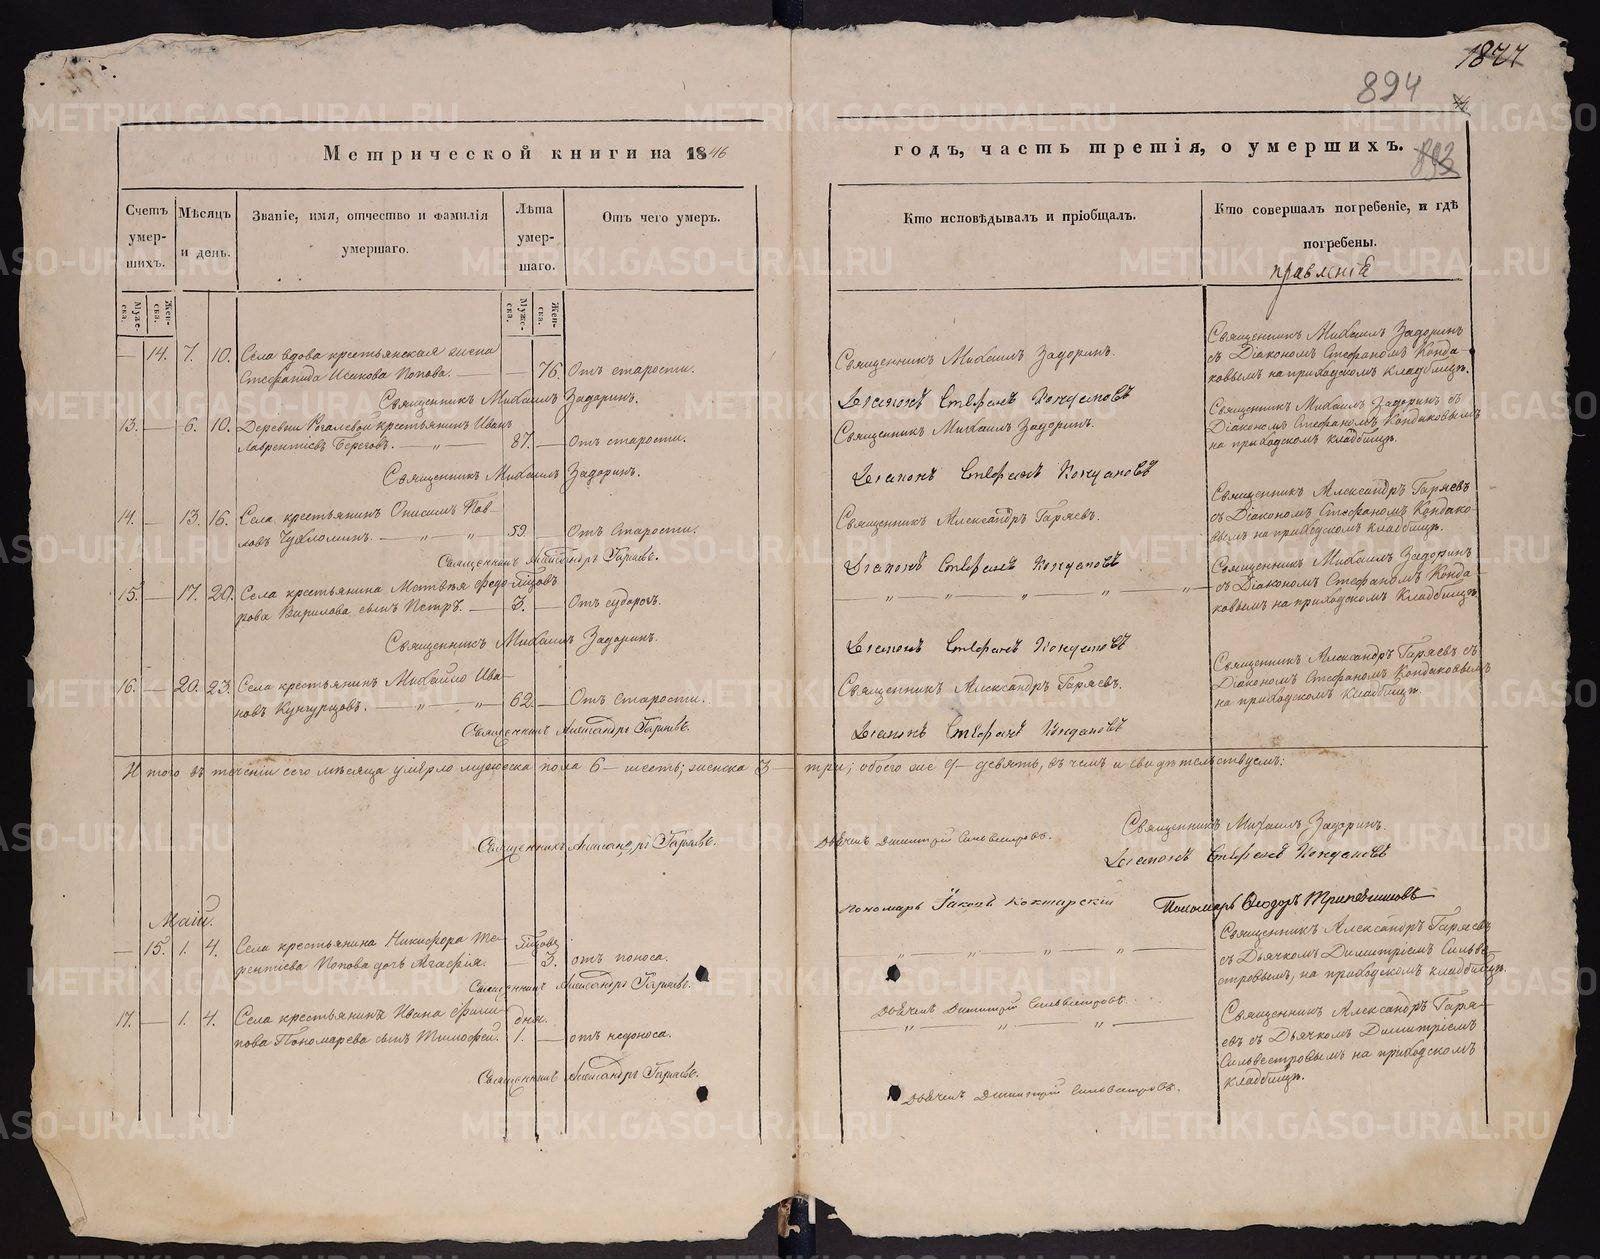 1877
894
893
Метрической книги на 1846
годъ, часть третія, о умершихъ.
Счетъ умер- шихъ.
Мѣсяцъ и день.
Званіе, имя, отчество и фамилія умершаго.
Лѣта умер- шаго.
Отъ чего умеръ.
Кто исповѣдывалъ и пріобщалъ.
Кто совершалъ погребеніе, и гдѣ погребены.
правленія
Муже- ска.
Жен- ска.
Муже- ска.
Жен- ска.
— 14. 7. 10. Села вдова крестьянская жена
Стефанида Исакова Попова. — — 76. Отъ старости.
Священникъ Михаилъ Задоринъ.
Священникъ Михаилъ Задоринъ.
Діаконъ Стефанъ Кондаковъ
Священникъ Михаилъ Задоринъ
съ Діакономъ Стефаномъ Конда-
ковымъ на приходскомъ кладбищѣ.
13. — 6. 10. Деревни Рогалевой крестьянинъ Иванъ
Лаврентіевъ Береговъ. — „ — 87. — Отъ старости.
Священникъ Михаилъ Задоринъ.
Священникъ Михаилъ Задоринъ.
Діаконъ Стефанъ Кондаковъ
Священникъ Михаилъ Задоринъ съ
Діакономъ Стефаномъ Кондаковымъ
на приходскомъ кладбищѣ.
14. — 13. 16. Села крестьянинъ Онисимъ Пав-
ловъ Чухломинъ. — „ — „ — 59. — Отъ старости.
Священникъ Александръ Гаряевъ.
Священникъ Александръ Гаряевъ.
Діаконъ Стефанъ Кондаковъ
Священникъ Александръ Гаряевъ
съ Діакономъ Стефаномъ Кондако-
вымъ на приходскомъ кладбищѣ.
15. — 17. 20. Села крестьянина Матвѣя Федо-
рова Вирилова сынъ Петръ. — 3. — Отъ судорогъ.
Священникъ Михаилъ Задоринъ.
— „ — „ — „ — „ — „ —
Діаконъ Стефанъ Кондаковъ
Священникъ Михаилъ Задоринъ
съ Діакономъ Стефаномъ Конда-
ковымъ на приходскомъ кладбищѣ.
16. — 20. 23. Села крестьянинъ Михайло Ива-
новъ Кунгурцовъ. — „ — „ — 62. — Отъ старости.
Священникъ Александръ Гаряевъ.
Священникъ Александръ Гаряевъ.
Діаконъ Стефанъ Кондаковъ
Священникъ Александръ Гаряевъ съ
Діакономъ Стефаномъ Кондаковымъ
на приходскомъ кладбищѣ.
Итого въ теченіи сего мѣсяца умерло мужеска пола 6 — шесть; женска 3 — три; обоего же 9 — девять, въ чемъ и свидѣтельствуемъ:
Священникъ Михаилъ Задоринъ.
Священникъ Александръ Гаряевъ.
Дьячекъ Димитрій Сильвестровъ.
Діаконъ Стефанъ Кондаковъ
Пономарь Іаковъ
Пономарь Феодоръ
Маій.
— 15. 1. 4. Села крестьянина Никифора Те-
рентіева Попова дочь Агафія. — 3. отъ поноса.
Священникъ Александръ Гаряевъ.
„ — „ — „ — „ —
Дьячекъ Димитрій Сильвестровъ.
Священникъ Александръ Гаряевъ
съ Дьячкомъ Димитріемъ Сильве-
стровымъ, на приходскомъ кладбищѣ.
17. — 1. 4. Села крестьянина Ивана Фили-
пова Пономарева сынъ Тимофей. дня. 1. — отъ недоноса.
Священникъ Александръ Гаряевъ.
— „ — „ — „ —
Дьячекъ Димитрій Сильвестровъ.
Священникъ Александръ Гаря-
евъ съ Дьячкомъ Димитріемъ
Сильвестровымъ на приходскомъ
кладбищѣ.
METRIKI.GASO-URAL.RU